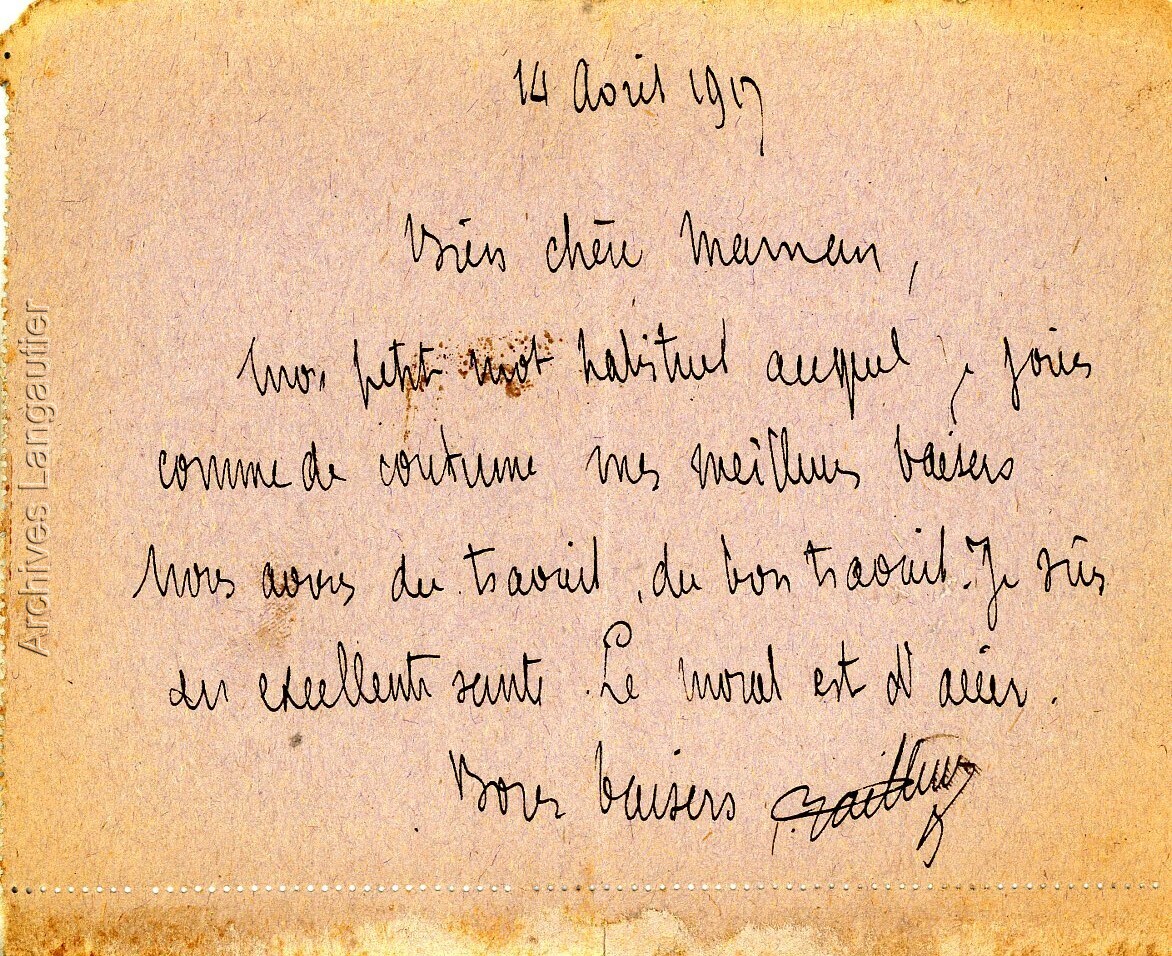 14 Avril 1917
Bien chère Maman,
Mon petit mot habituel auquel je joins
comme de coutume mes meilleurs baisers
Nous avons du travail, du bon travail. Je suis
en excellente santé. Le moral est d'acier.
Bons baisers
Archives Langautier